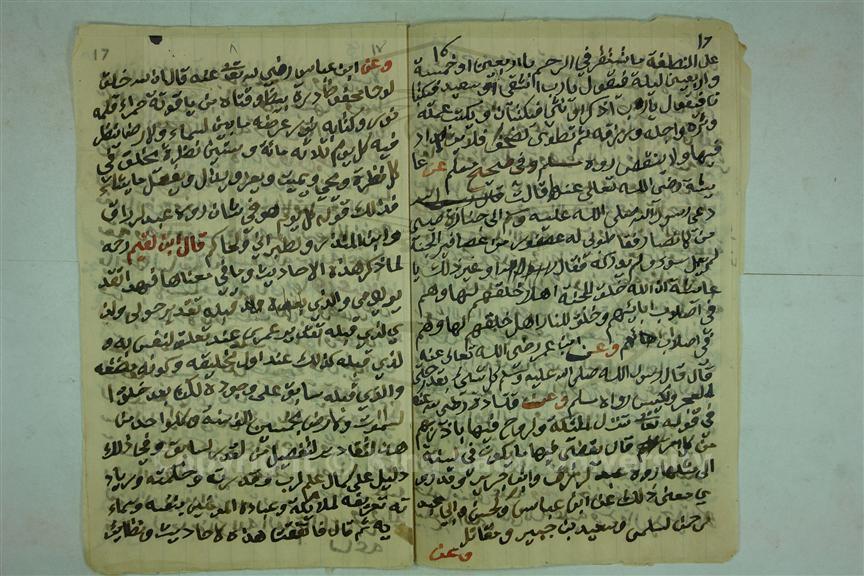 ١٦
على النطفة ما تستقر في الرحم باربعين او خمسة
والاربعين ليلة فيقول يا رب اشقي او سعيد فيكتبا
ن فيقول يا رب اذكر او انثى فيكتبان ويكتب عمله
واثره واجله ورزقه ثم تطوى الصحف فلا يزاد
فيها ولا ينقص رواه مسلم وفي صحيح مسلم عن عا
يشة رضي الله تعالى عنها قالت
دعي رسول الله صلى الله عليه وسلم الى جنازة صبي
من الانصار فقلت طوبى له عصفور من عصافير الجنة
لم يعمل سوء ولم يدركه فقال او غير ذلك يا
عايشة ان الله خلق للجنة اهلا خلقهم لها وهم
في اصلاب ابائهم وخلق للنار اهلا خلقهم لها وهم
في اصلاب ابائهم وعن ابن عمر رضي الله تعالى عنه
قال قال رسول الله صلى الله عليه وسلم كل شئ بقدر حتى
العجز والكيس رواه مسلم وعن قتادة رضي الله عنه
في قوله تعالى تنزل الملائكة والروح فيها باذن ربهم
من كل امر قال يقضى فيها ما يكون في السنة
الى مثلها رواه عبد الرزاق وابن جرير وقد رو
ي معنى ذلك عن ابن عباس والحسن وابي عبد
الرحمن السلمي وسعيد بن جبير ومقاتل
وعن
١٧
وعن ابن عباس رضي الله تعالى عنه قال ان الله خلق
لوحا محفوظا من درة بيضاء دفتاه من ياقوتة حمراء قلمه
نور وكتابه نور عرضه ما بين السماء والارض ينظر
فيه كل يوم ثلاثمائة وستين نظرة يخلق في
كل نظرة ويحيي ويميت ويعز ويذل ويفعل ما يشاء
فذلك قوله كل يوم هو في شأن رواه عبد الرزاق
وابن المنذر والطبراني والحاكم قال ابن القيم رحمه
لما ذكر هذه الاحاديث وما في معناها فهذا تقد
ير يومي والذي قبله تقدير حولي والذ
ي الذي قبله تقدير عمري عند تعلق النفس به و
الذي قبله كذلك عند اول تخليقه وكونه مضغة
والذي قبله سابق على وجوده لكن بعد خلق ا
لسموات والارض بخمسين الف سنة وكل واحد من
هذه التقادير كالتفصيل من القدر السابق وفي ذلك
دليل على كمال علم الرب وقدرته وحكمته وزياد
ة تعريفه الملائكة وعباده المؤمنين بنفسه واسماء
يه ثم قال فاتفقت هذه الاحاديث ونظايرها